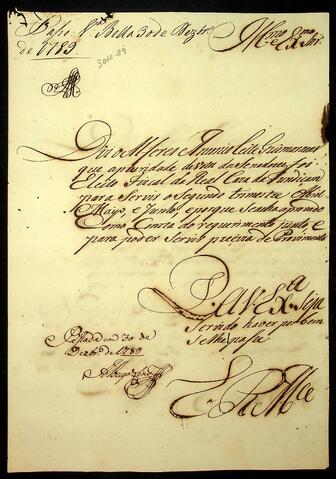 Passe P.ᵃ Bella 30 de Dezbrº
de 1789
Illmo e Exmo Snr
30-12-89
Diz o Alferes Antonio Leite Guimaraens
que a pluralidade de do Senado foi
Eleito Fiscal da Real Caza da Fundicam
para Servir o Segundo trimestre Abril
Mayo, e Junho, e porque se acha aprovado
Como Consta do requerimento junto e
para poder Servir preciza de Provimento
P. a V Exᵃ Seja
Servido haver por bem
Passada em 30 de
Dezbrº de 1789
E R Mce